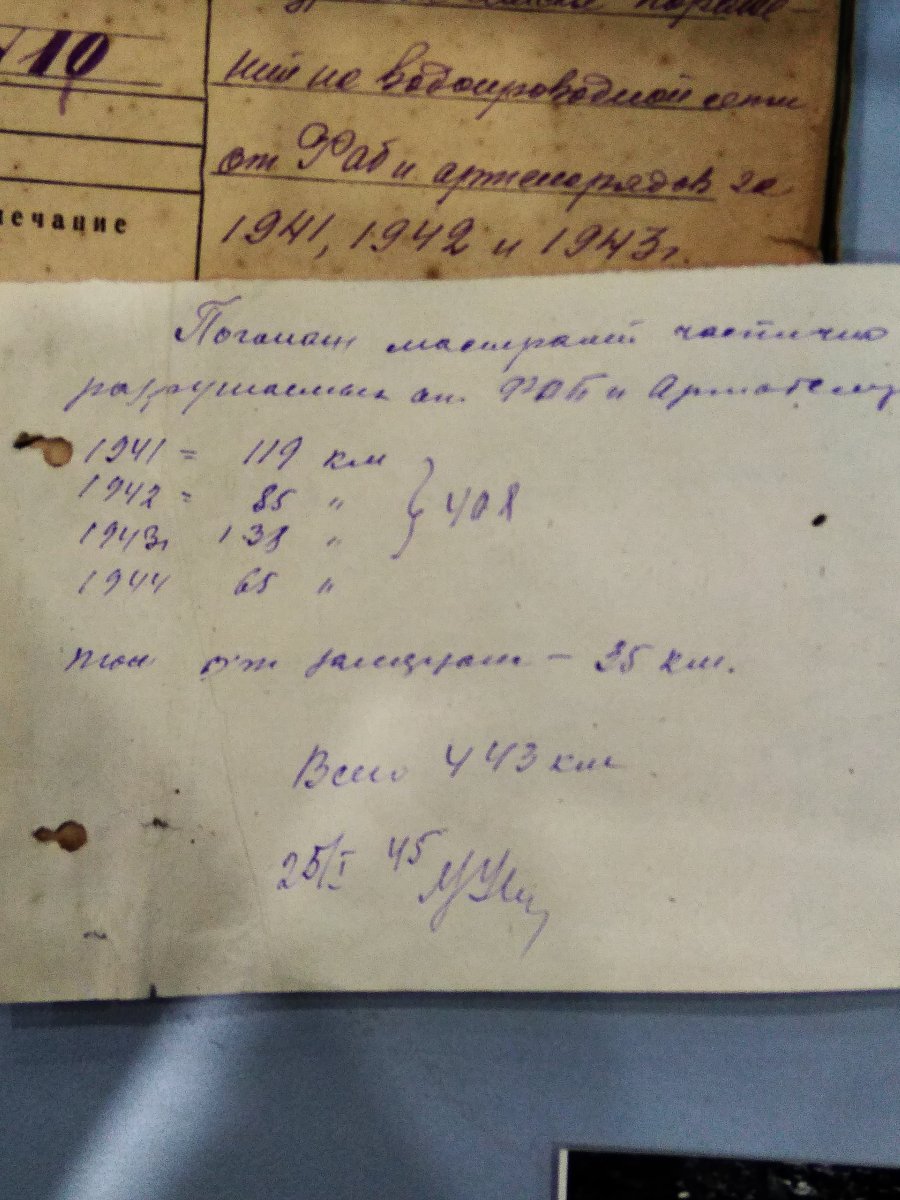 №10
чечание
ний на водопроводной сети
от Фаб и артснарядов за
1941, 1942 и 1943г.
Погонаж магистралей частично
разрушаемых от ФАБ и Артобстр
1941 = 119 км
1942 = 85 "
1943г 138 " } 408
1944 65 "
от - 35 км.
Всего 443 км
25/I 45